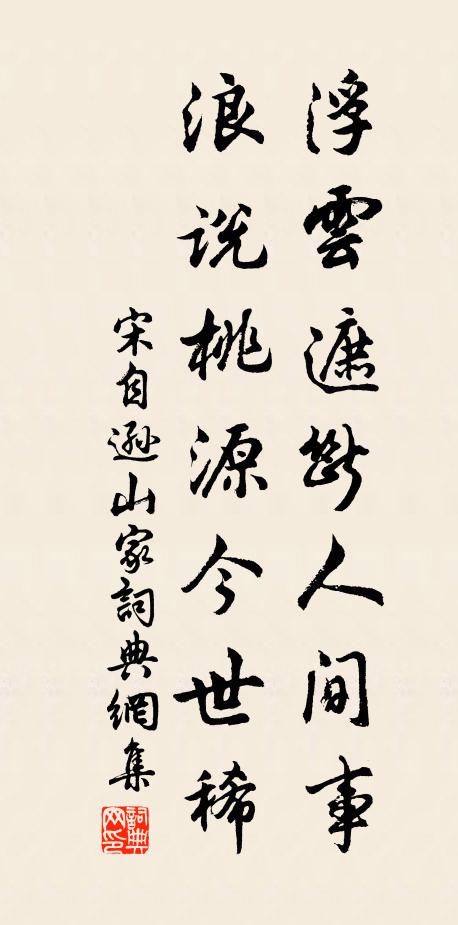 浮雲遮斷人間事
浪説桃源今世稀
宋自遜山家詞典網集
詞典网印